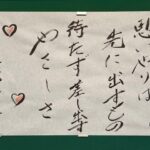 思いやりは
先に出すもの
待たず差し出す
やさしさ